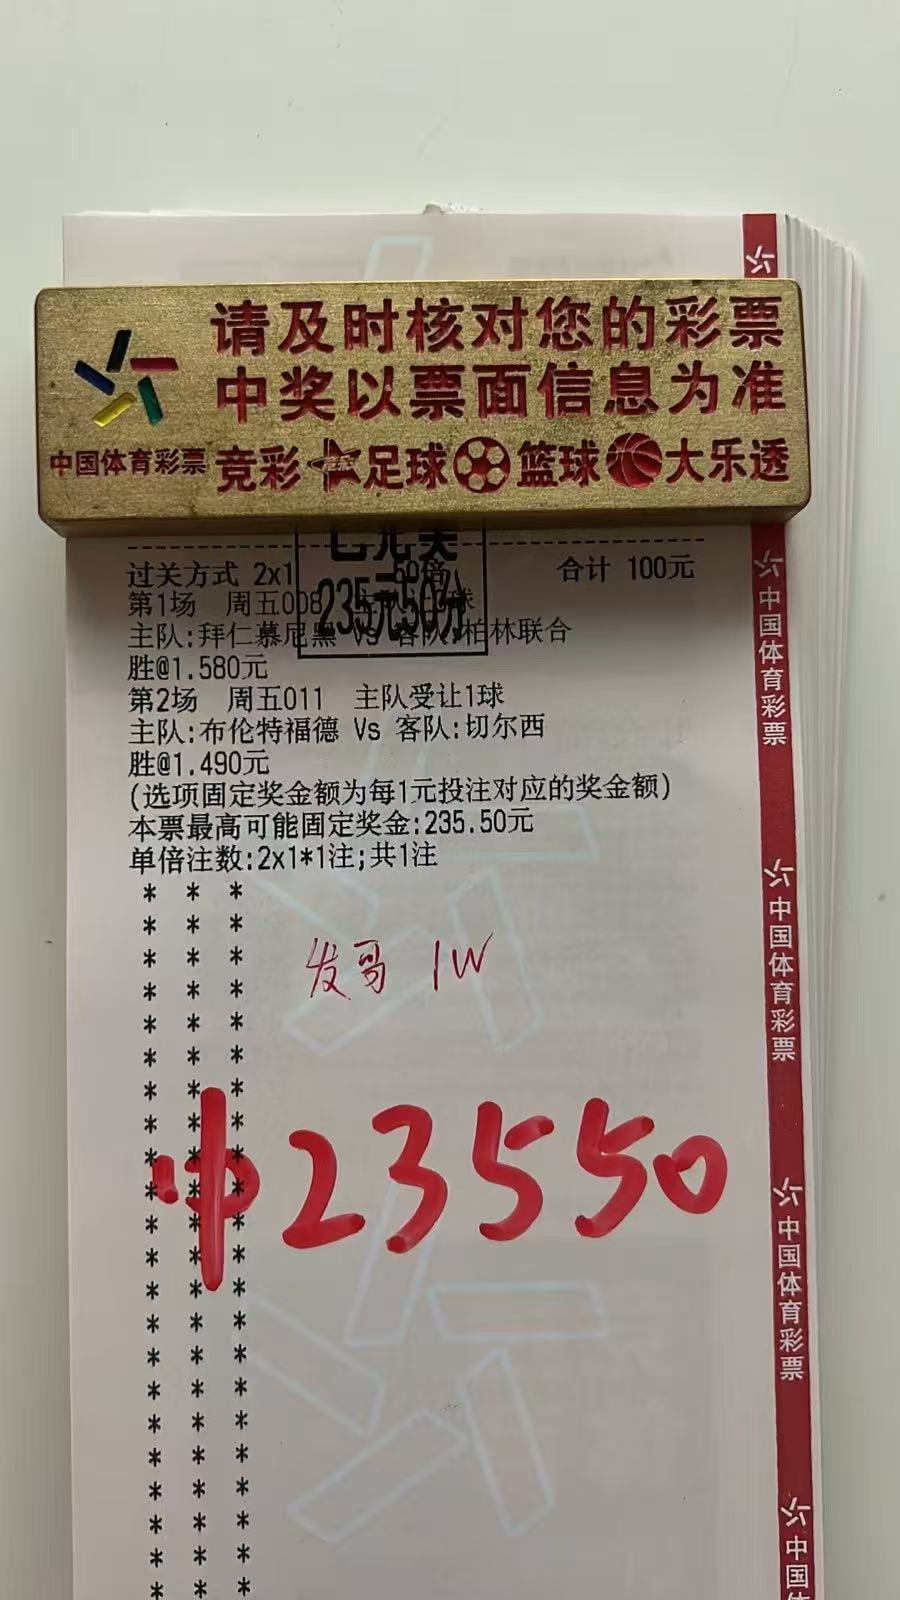 请及时核对您的彩票
中奖以票面信息为准
中国体育彩票
竞彩 足球 篮球 大乐透
过关方式 2x1 50倍 合计 100元
235元50分
第1场 周五008
主队:拜仁慕尼黑 Vs 客队:柏林联合
胜@1.580元
第2场 周五011 主队受让1球
主队:布伦特福德 Vs 客队:切尔西
胜@1.490元
(选项固定奖金额为每1元投注对应的奖金额)
本票最高可能固定奖金:235.50元
单倍注数:2x1*1注;共1注
发哥 1W
中23550
中国体育彩票
中国体育彩票
中国体育彩票
中国